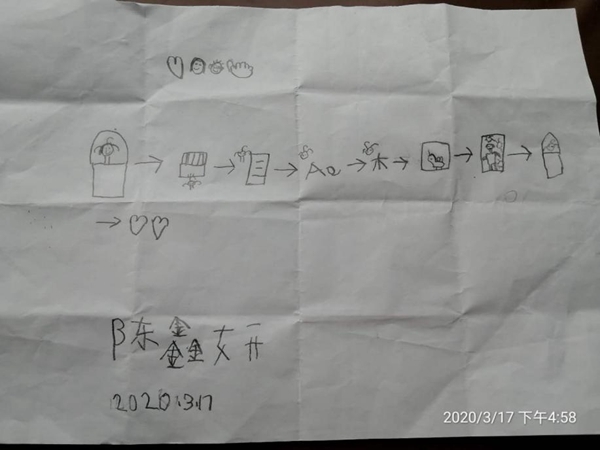 Aa 木
陈鑫妍
2020.3.17
2020/3/17 下午4:58